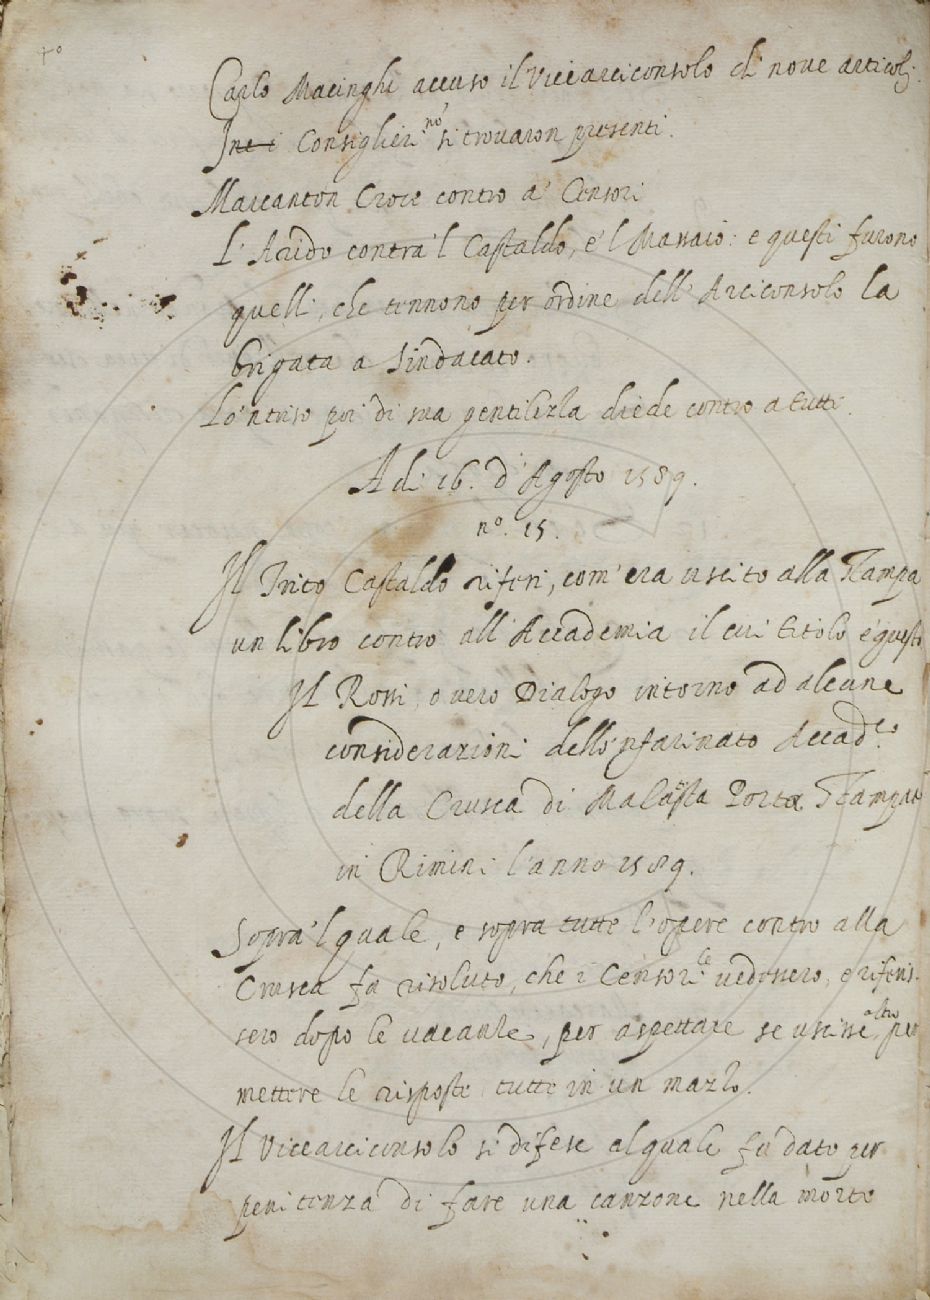 Carlo Macinghi accusò il Viciarciconsolo di nove articoli.
I ne i Consiglieri nō si trovaron presenti.
Marcanton Croce contro a' Censori
L'Acido contra 'l Castaldo, e 'l Massaio: e questi furono
quelli, che tennono per ordine dell'Arciconsolo la
brigata a Sindacato.
Lo 'ntriso poi di sua gentilezza diede contro a tutti.
A di 16. d'Agosto 1589.
nº. 15.
Il Trito Castaldo riferì, com'era uscito alla stampa
un libro contro all'Accademia il cui titolo è questo
Il Rossi, overo Dialogo intorno ad alcune
considerazioni dello 'nfarinato Accad.co
della Crusca di Malatesta Porta Stampato
in Rimini l'anno 1589.
Sopra 'l quale, e sopra tutte l'opere contro alla
Crusca fu risoluto, che i Censori le vedessero, e riferis-
sero dopo le vacanze, per aspettare se uscisse altro, per
mettere le risposte tutte in un mazzo.
Il Vicearciconsolo si difese al quale fu dato per
penitenza di fare una canzone nella morte